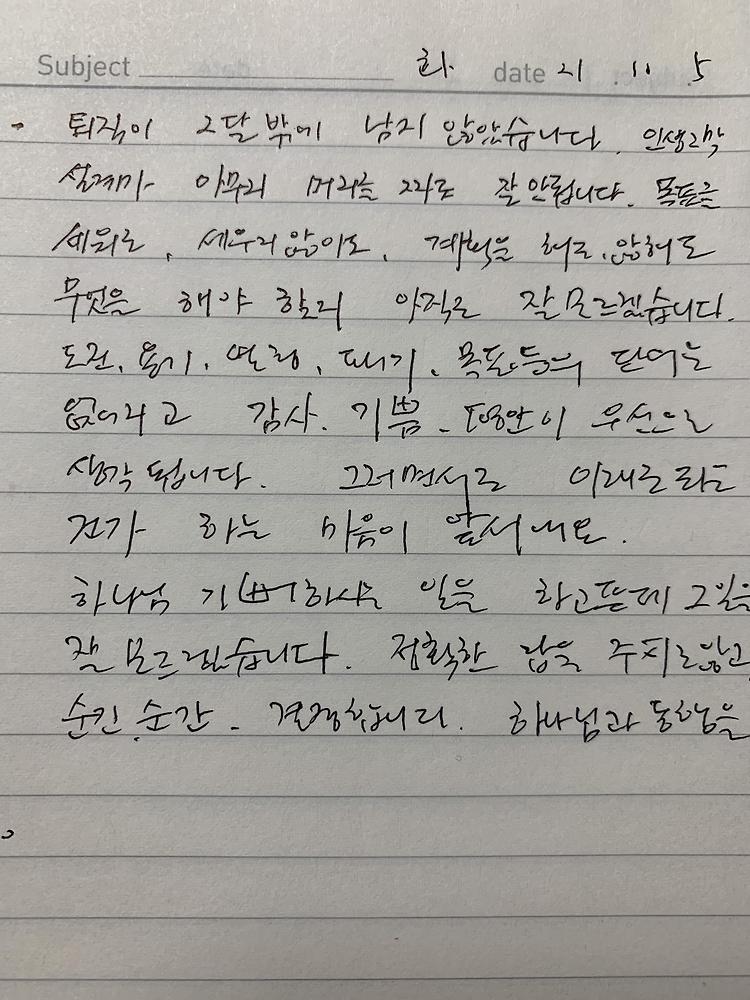 Subject 화. date 21 . 11 . 5
- 퇴직이 2달 밖에 남지 않았습니다. 인생2막
설계가 아무리 머리를 짜도 잘 안됩니다. 목표를
세워도, 세우지 않아도, 계획을 해도, 않해도
무엇을 해야 할지 아직도 잘 모르겠습니다.
도전, 용기, 열정, 패기, 목표 등의 단어는
없어지고 감사. 기쁨. 평안이 우선으로
생각 됩니다. 그러면서도 이래도 되는
건가 하는 마음이 앞서네요.
하나님 기뻐하시는 일을 하고픈데 그일을
잘 모르겠습니다. 정확한 답을 주지도 않고
순간, 순간 . 결정합니다. 하나님과 동행을